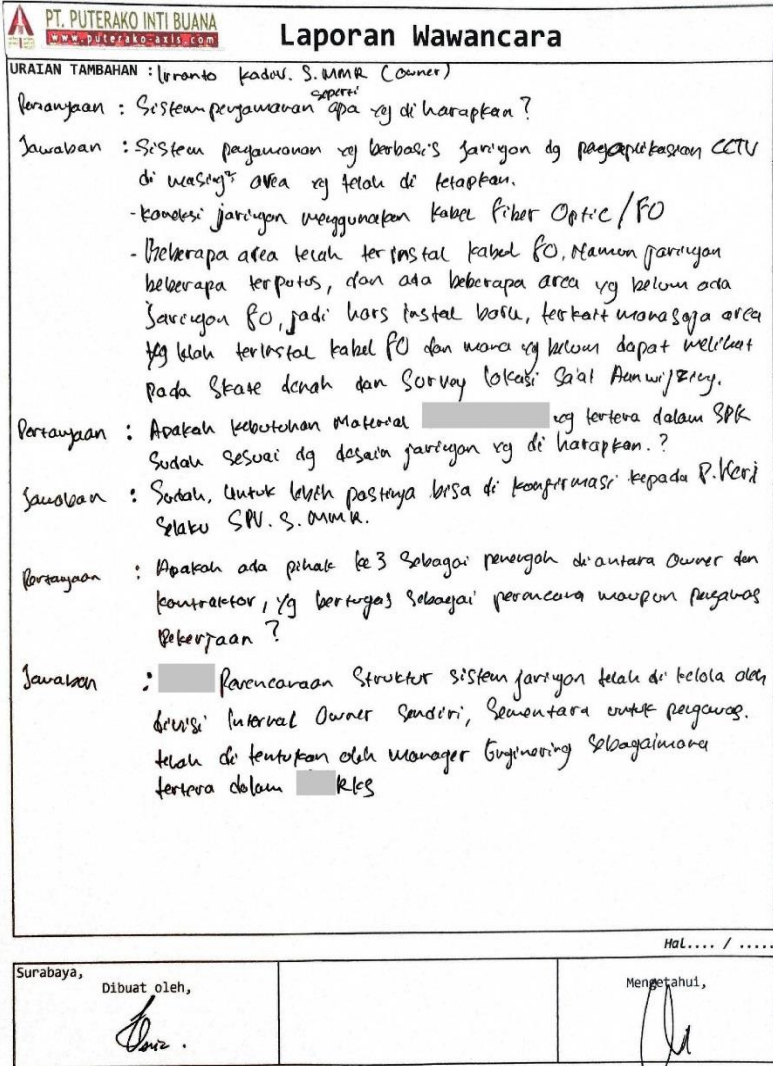 PT. PUTERAKO INTI BUANA
www.puterako-axis.com
Laporan Wawancara
URAIAN TAMBAHAN : Kadiv. S.MMR (Owner)
seperti
Pertanyaan : Sistem pengamanan apa yg di harapkan ?
Jawaban : Sistem pengamanan yg berbasis Jaringan dg pengaplikasian CCTV
di masing² area yg telah di tetapkan.
- koneksi jaringan menggunakan kabel fiber Optic / FO
- Beberapa area telah terinstal kabel FO, Namun jaringan
beberapa terputus, dan ada beberapa area yg belum ada
Jaringan FO, jadi hars instal baru, terkait mana saja area
yg telah terinstal kabel FO dan mana yg belum dapat melihat
pada Skate denah dan Survey lokasi Sa'at Aanwijzing.
Pertanyaan : Apakah kebutuhan Material yg tertera dalam SPK
Sudah sesuai dg desain jaringan yg di harapkan. ?
Jawaban : Sudah, untuk lebih pastinya bisa di konfirmasi kepada P. Heri
Selaku SPV. S. MMR.
Pertanyaan : Apakah ada pihak ke 3 Sebagai penengah di antara Owner dan
kontraktor, yg bertugas Sebagai perencana maupun pengawas
Pekerjaan ?
Jawaban : Perencanaan Struktur sistem jaringan telah di kelola oleh
divisi Internal Owner Sendiri, Sementara untuk pengawas.
telah di tentukan oleh manager Enginering Sebagaimana
tertera dalam RKS
Hal.... / .....
Surabaya,
Dibuat oleh,
Mengetahui,